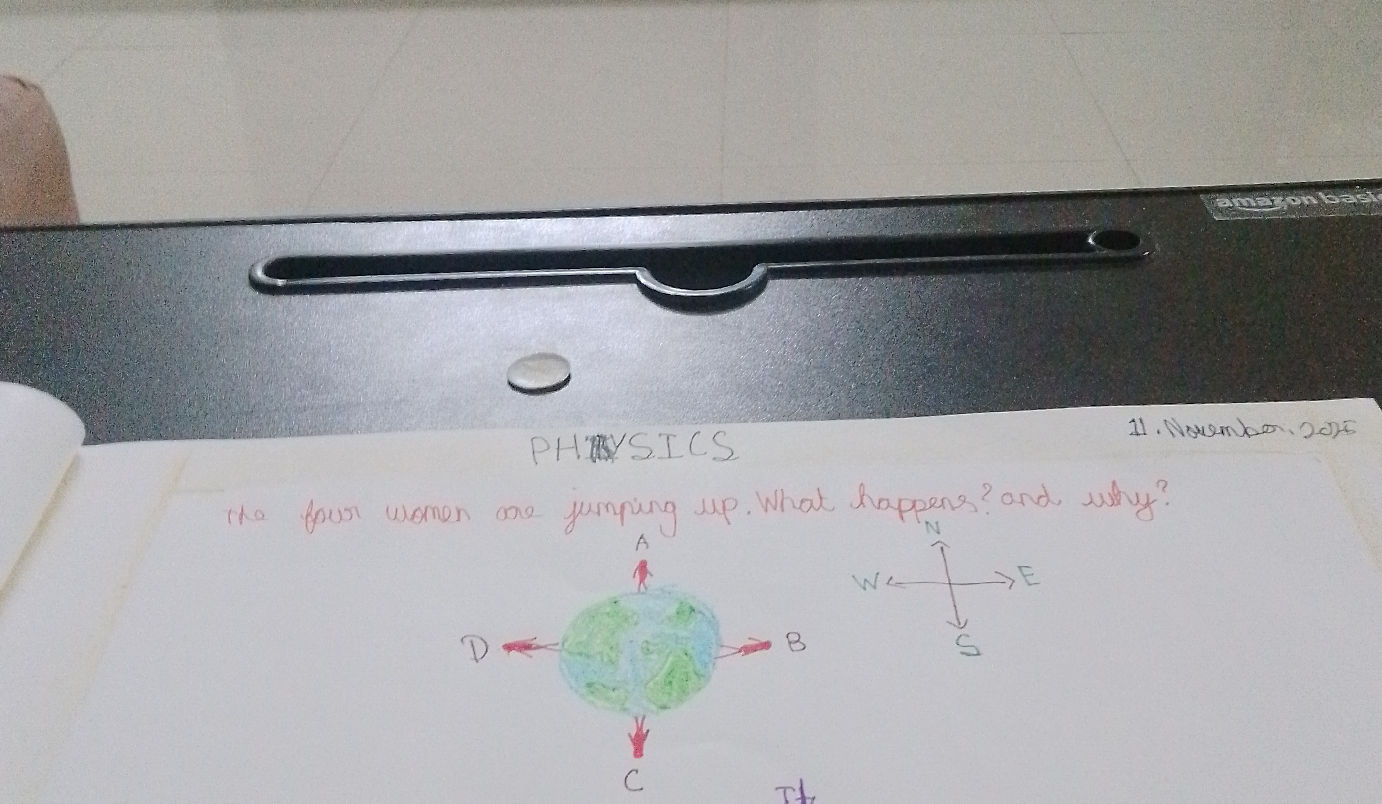 amazon basic
PHYSICS
11. November. 2025
The four women are jumping up. What happens? and why?
A
N
W
E
D
B
S
C
It